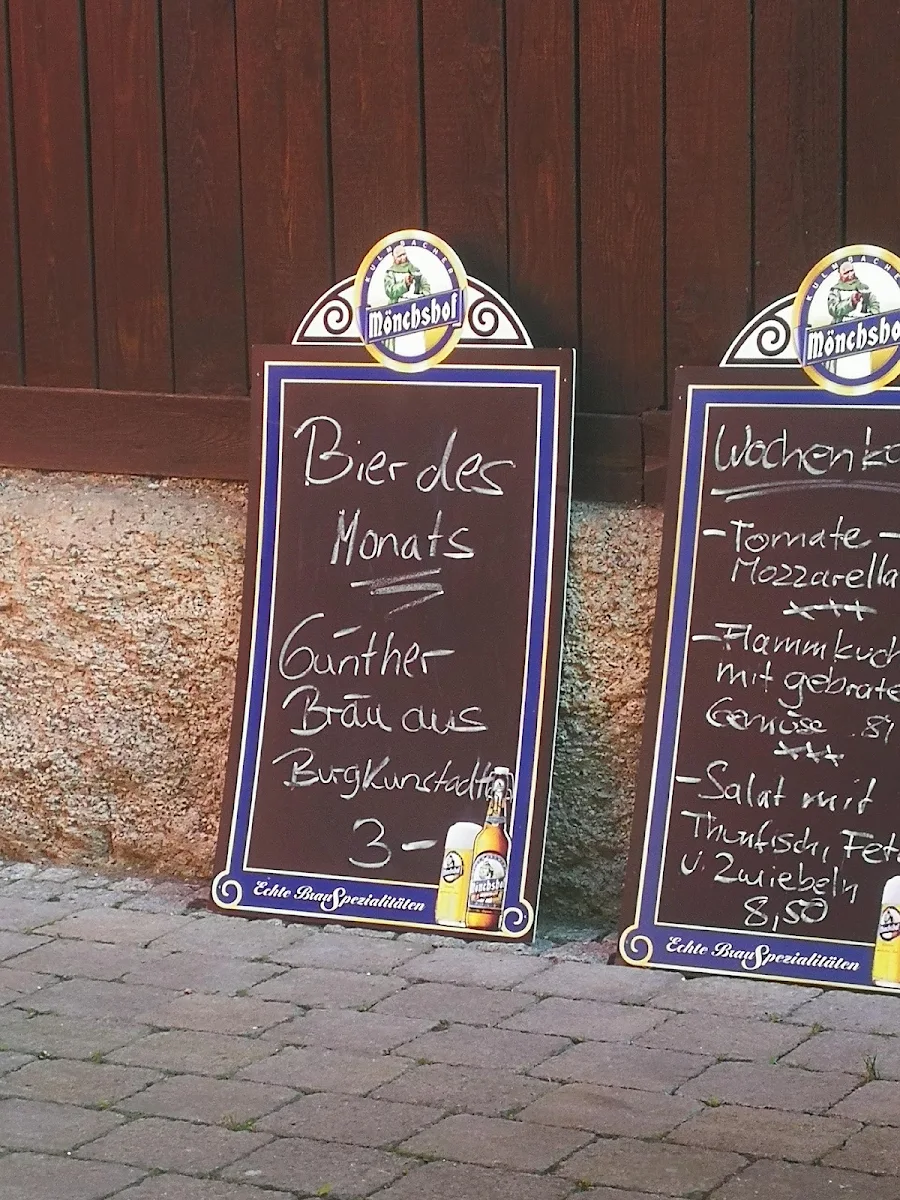 KULMBACHER
Mönchshof
Bier des
Monats
Günther
Bräu aus
Burgkunstadt
3-
Echte BrauSpezialitäten
KULMBACHER
Mönchsho
Wochenka
- Tomate -
Mozzarella
- Flammkuch
mit gebrate
Gemüse 8,
- Salat mit
Thunfisch, Fet
u. Zwiebeln
8,50
Echte BrauSpezialitäten